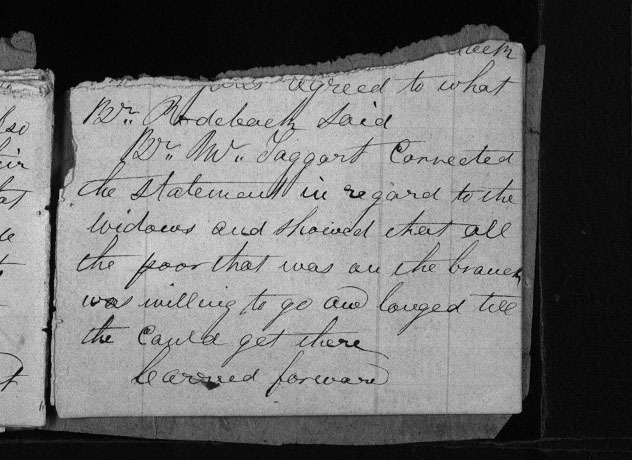 agreed to what
Br. Rodeback Said
Br. Mc. Taggart Connected
the statement in regard to the
widows and showed that all
the poor that was on the branch
was willing to go and longed till
the Could get there
Carried forward